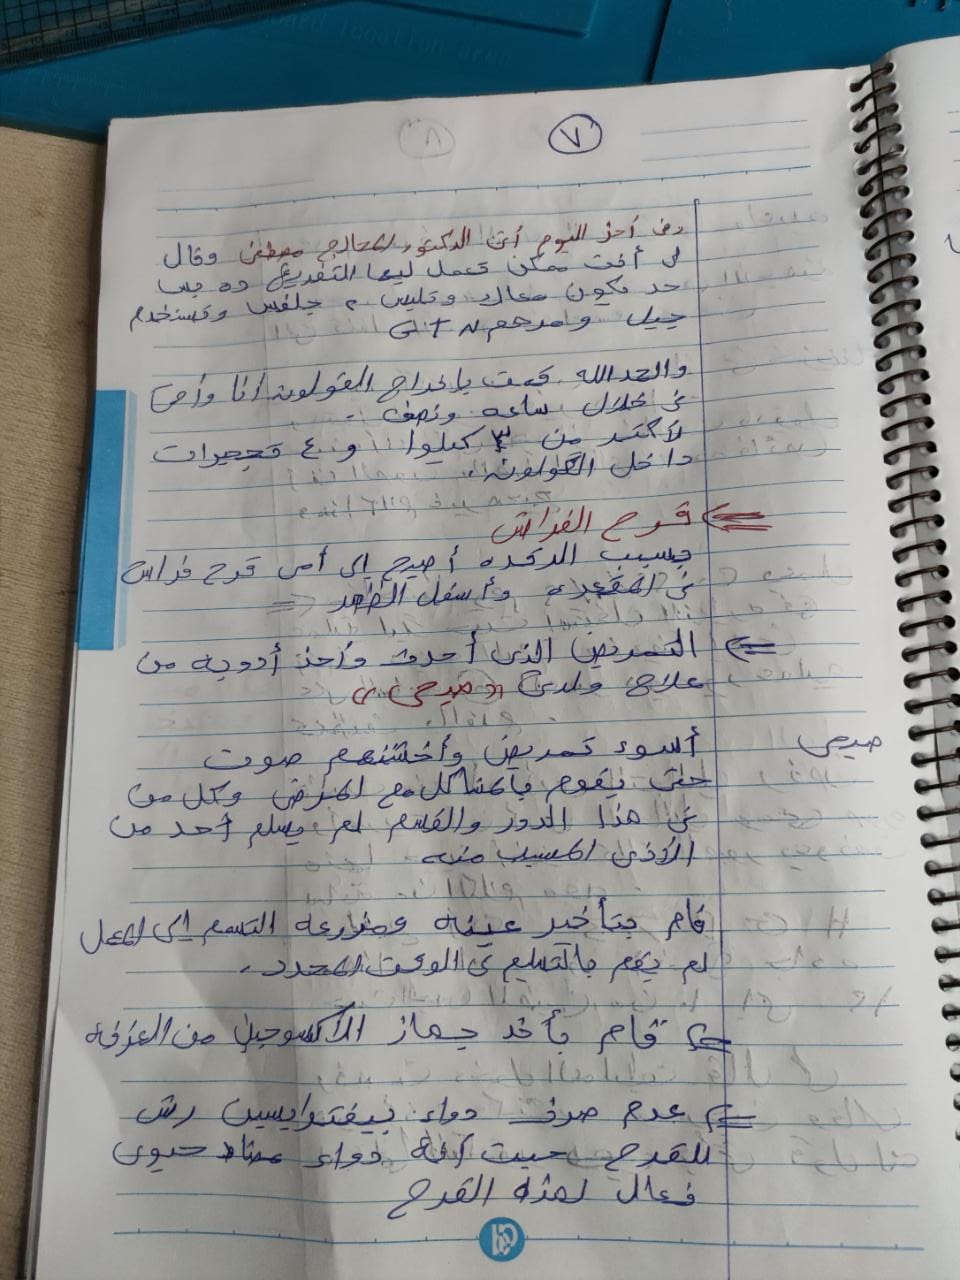 ٧
وفى أخر اليوم أتى الدكتور المعالج مصطفى وقال
لى أنت ممكن تعمل ليها التفريغ ده بس
حد يكون معاك وتلبس جلفس وتستخدم
جيل ومرهم
والحمد الله قمت بإخراج القولون أنا وأمى
فى خلال ساعه ونصف
لأكتر من ٣ كيلوا و ٤ تحجيرات
داخل القولون
قرح الفراش
بسبب الرقده أصبح إلى أمى قرح فراش
فى المقعده وأسفل الظهر
التمريض الذى أحدث وأخذ أدويه من
علاج ولدتى صبحى
صبحى
أسوء تمريض وأخشنهم صوت
حتى يقوم بالمشاكل مع المرضى وكل من
فى هذا الدور والقسم لم يسلم أحد من
الأذى المسبب منه
قام بتأخير عينه ومزارعة التسمم إلى المعمل
لم يقم بالتسليم فى الوقت المحدد.
قام بأخد جهاز الأكسوجين من الغرفة
عدم صرف دواء بيفتراسين رش
للقرح حيث أنه دواء مضاد حيوى
فعال لهذه القرح